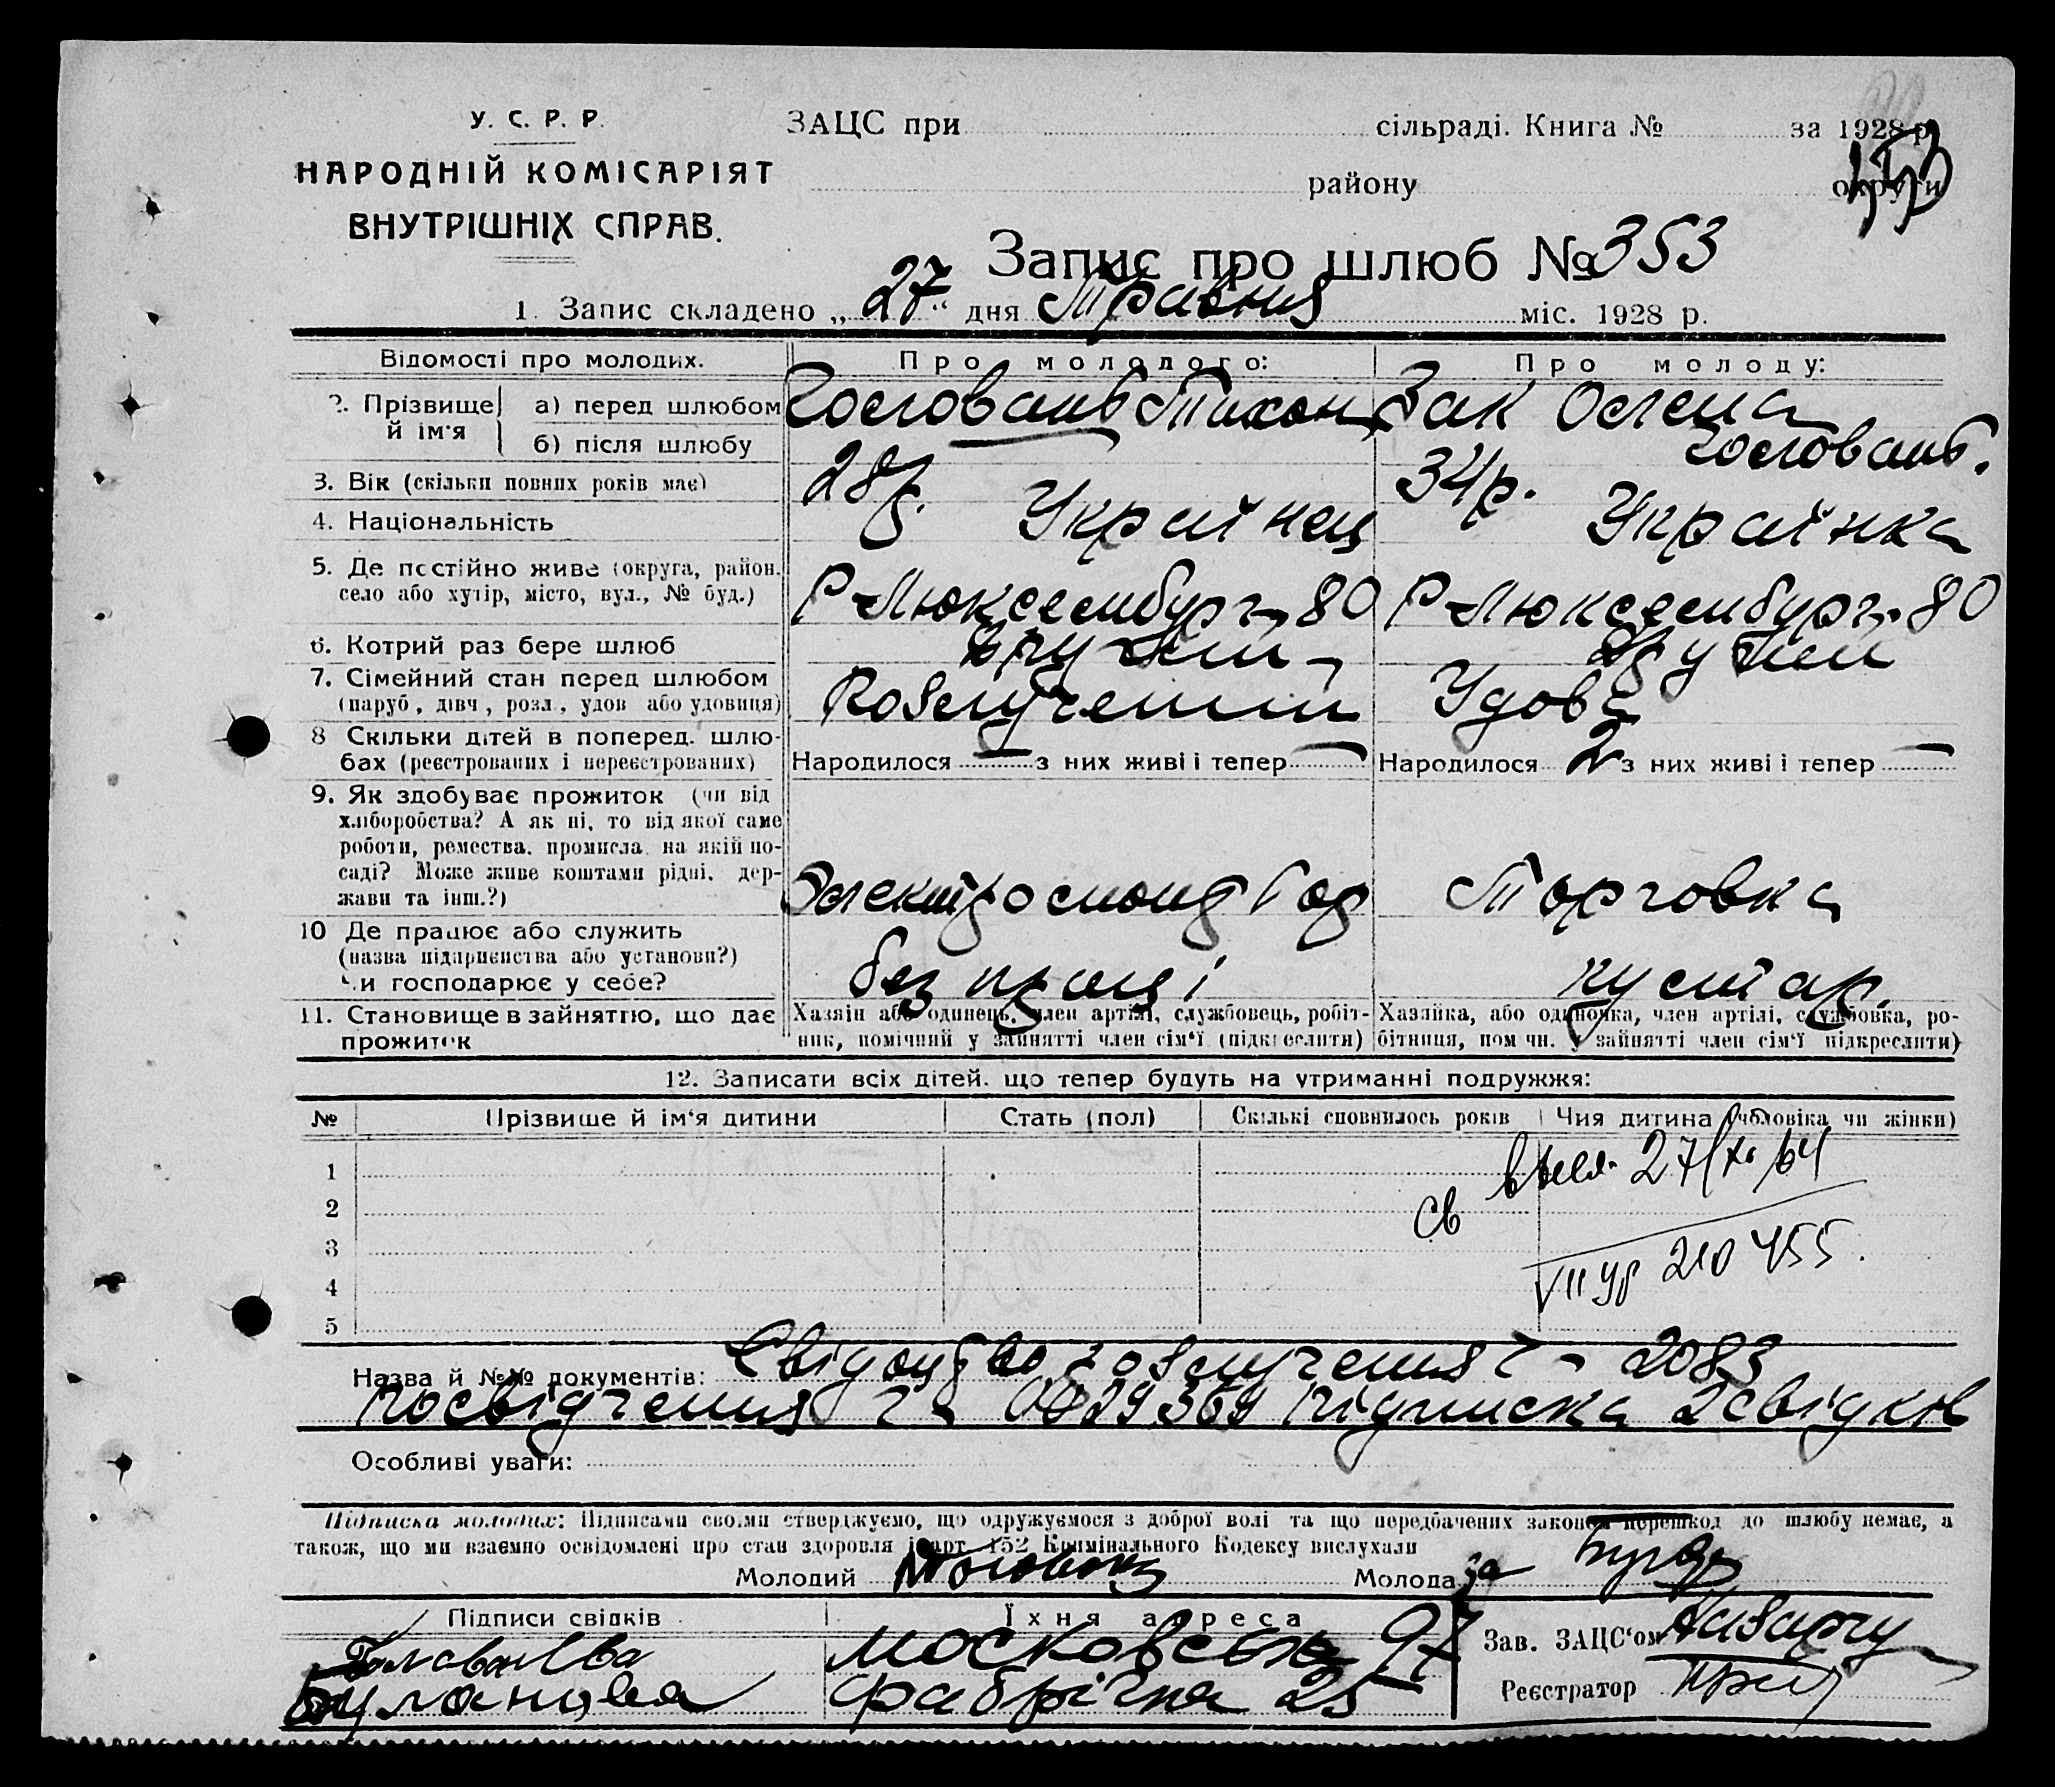 У. С. Р. Р.
НАРОДНІЙ КОМІСАРІЯТ
ВНУТРІШНІХ СПРАВ.
ЗАЦС при сільраді. Книга № за 1928 р.
району округи
153
Запис про шлюб № 353
1. Запис складено „ 27 “ дня Травня міс. 1928 р.
Відомості про молодих. Про молодого: Про молоду:
2. Прізвище й ім'я а) перед шлюбом Тихон Зак Олена
б) після шлюбу
3. Вік (скільки повних років має) 28 р. 34 р.
4. Національність Українец Українка
5. Де постійно живе (округа, район,
село або хутір, місто, вул., № буд.) Р-Люксембург 80 Р-Люксембург 80
6. Котрий раз бере шлюб другий другий
7. Сімейний стан перед шлюбом
(паруб, дівч, розл, удов або удовиця) Розлученний Удова
8 Скільки дітей в поперед. шлю-
бах (реєстрованих і нереєстрованих) Народилося — з них живі і тепер — Народилося 2 з них живі і тепер —
9. Як здобуває прожиток (чи від
хліборобства? А як ні, то від якої саме
роботи, ремества, промисла, на якій по-
саді? Може живе коштами рідні, дер-
жави та інш.?) Торговка
10 Де працює або служить
(назва підприємства або установи?)
Чи господарює у себе? без праці кустар.
11. Становище в зайняттю, що дає
прожиток
Хазяїн або одинець, член артілі, службовець, робіт-
ник, помічний у зайнятті член сім'ї (підкреслити)
Хазяйка, або одиночка, член артілі, службовка, ро-
бітниця, пом чн. у зайнятті член сім'ї підкреслити)
12. Записати всіх дітей, що тепер будуть на утриманні подружжя:
№ Прізвище й ім'я дитини Стать (пол) Скількі сповнилось років Чия дитина (чоловіка чи жінки)
1
2
3
4
5
св
210455.
Назва й №№ документів: Свідоцтво розлучення ч - 2083
посвідчення підписка 2 свідків
Особливі уваги:
Підписка молодих: Підписами своїми стверджуємо, що одружуємося з доброї волі та що передбачених законом перешкод до шлюбу немає, а
також, що ми взаємно освідомлені про стан здоровля і арт. 152 Кримінального Кодексу вислухали
Молодий Молода за
Підписи свідків Їхня адреса
Московська 97
Фабрічна 25
Зав. ЗАЦС'ом
Реєстратор